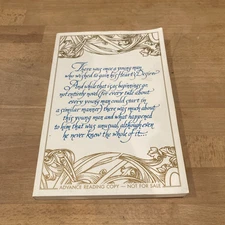 There was once a young man
who wished to gain his Heart's Desire.
And while that is, as beginnings go,
not entirely novel (for every tale about
every young man could start in
a similar manner) there was much about
this young man and what happened
to him that was unusual, although even
he never knew the whole of it....
ADVANCE READING COPY — NOT FOR SALE